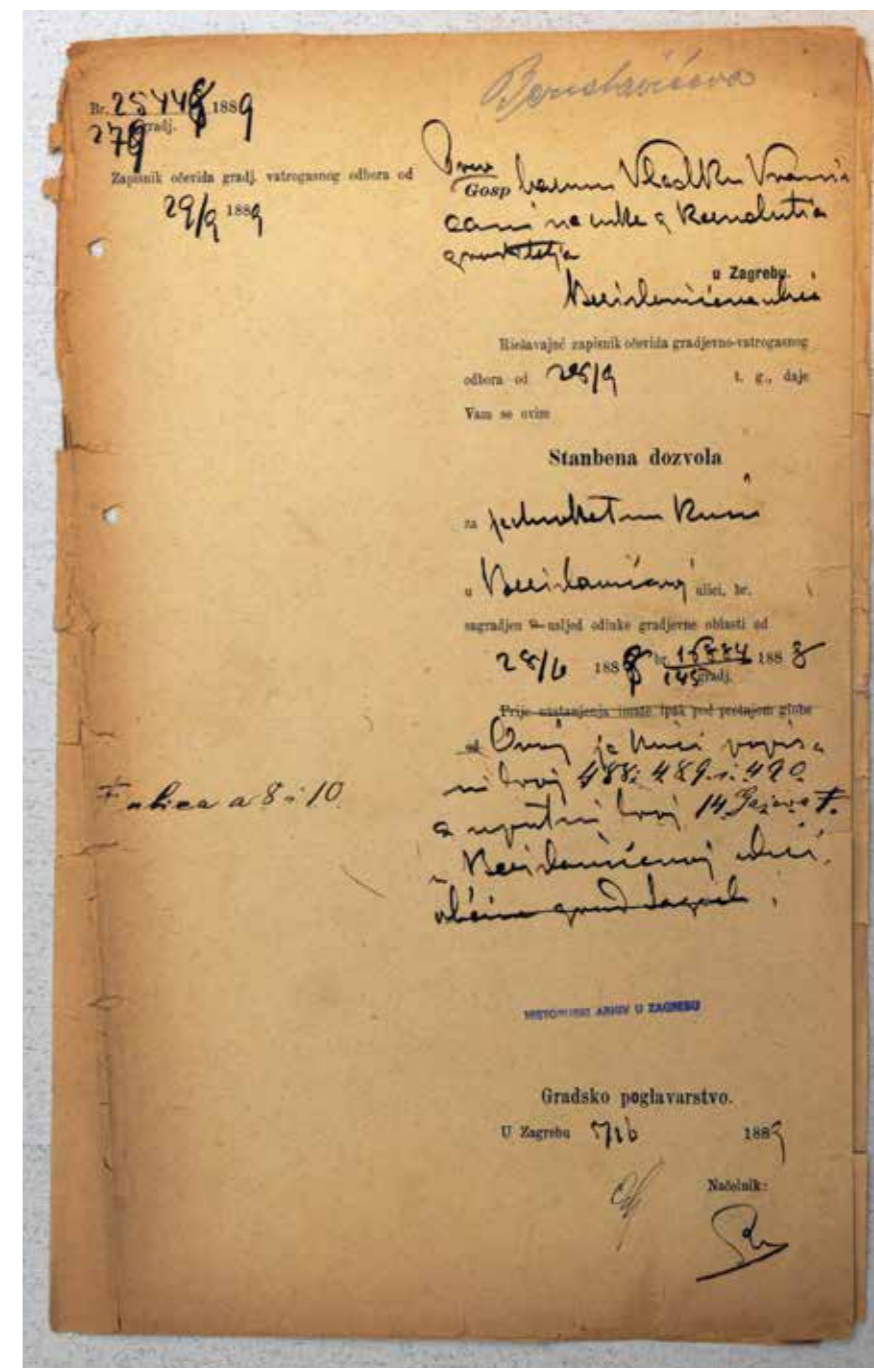 Berislavićeva
Br. 25448 1889
279 gradj.
Zapisnik očevida gradj. vatrogasnog odbora od
29/9 1889
Gosp barunu Vladku Vrani
u Zagrebu.
Berislavićeva ulica
Riešavajuć zapisnik očevida gradjevno-vatrogasnog
odbora od 29/9 t. g., daje
Vam se ovim
Stanbena dozvola
za jednokatnu kuću
u Berislavićevoj ulici, br.
sagradjen usljed odluke gradjevne oblasti od
28/6 188 br. 188 8
145 gradj.
Prije nastanjenja imate ipak pod pretnjom globe
od Ovoj je kući popis
ni broj 488; 489. i. 490
a uputni broj 14 Gajeva
u Berislavićevoj ulici.
obćine grad Zagreb.
ulica a 8 i 10.
HISTORIJSKI ARHIV U ZAGREBU
Gradsko poglavarstvo.
U Zagrebu 1889
Načelnik: